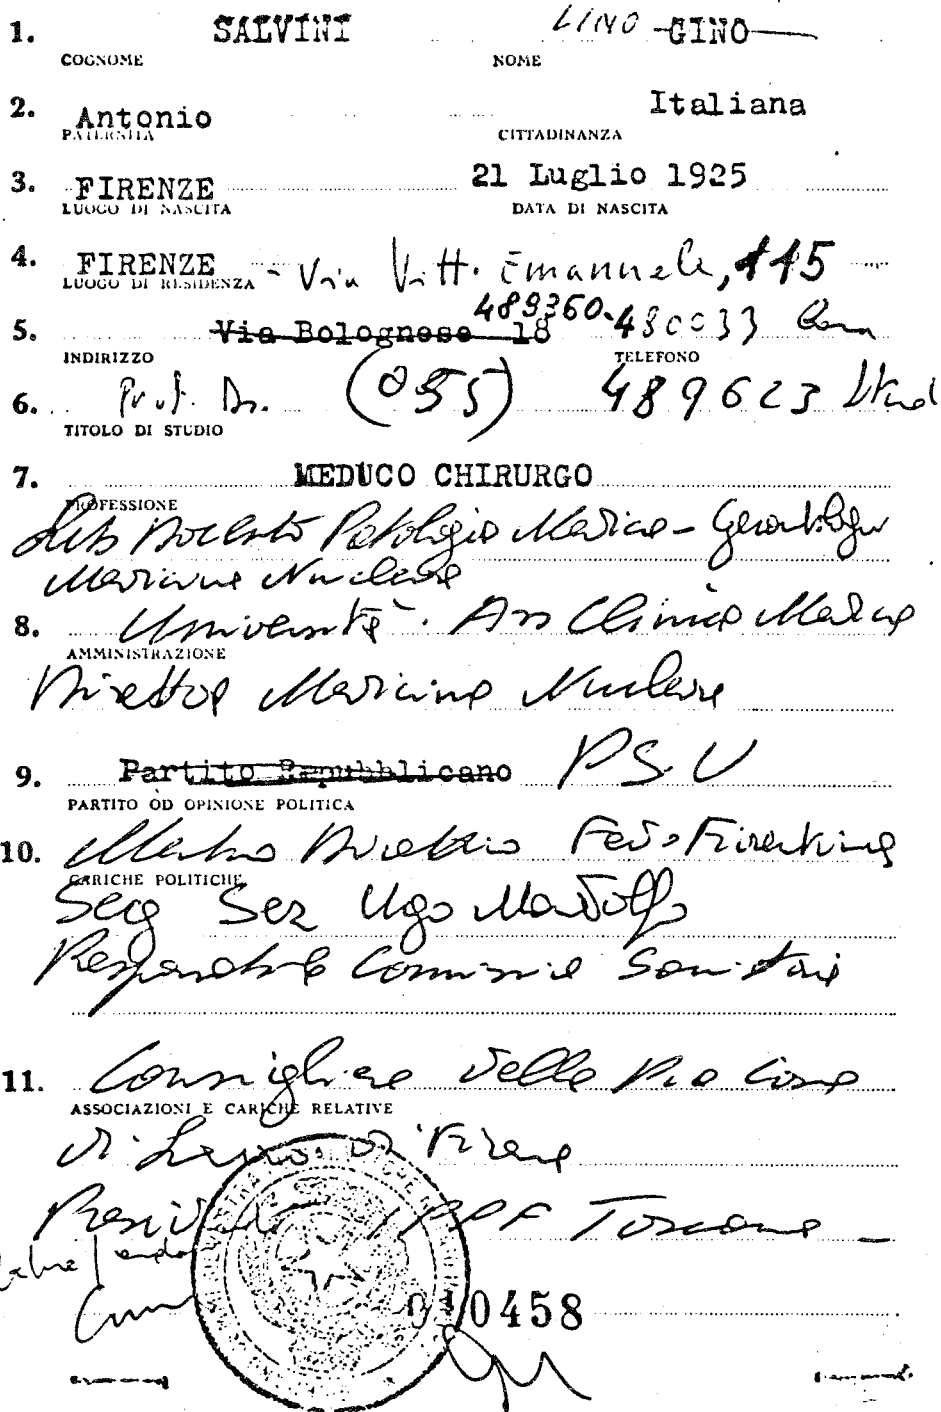 1. SALVINI LINO GINO
COGNOME NOME
2. Antonio Italiana
PATERNITÀ CITTADINANZA
3. FIRENZE 21 Luglio 1925
LUOGO DI NASCITA DATA DI NASCITA
4. FIRENZE - Via Vitt. Emanuele, 115
LUOGO DI RESIDENZA
489360.
5. Via Bolognese 18 480033
INDIRIZZO TELEFONO
6. Prof. Dr. (055) 489623
TITOLO DI STUDIO
7. MEDUCO CHIRURGO
PROFESSIONE
Lib Docente Patologia Medica - Gerontologia
Medicina Nucleare
8. Università. Clinica Medica
AMMINISTRAZIONE
Direttore Medicina Nucleare
9. Partito Repubblicano PSU
PARTITO OD OPINIONE POLITICA
10. Membro Direttivo Fed. Fiorentina
CARICHE POLITICHE
Seg Sez Ugo Mondolfo
Responsabile Commissione Sanitaria
11. Consigliere della Pia Casa
ASSOCIAZIONI E CARICHE RELATIVE
di Lavoro di Firenze
Presidente Toscana
0458